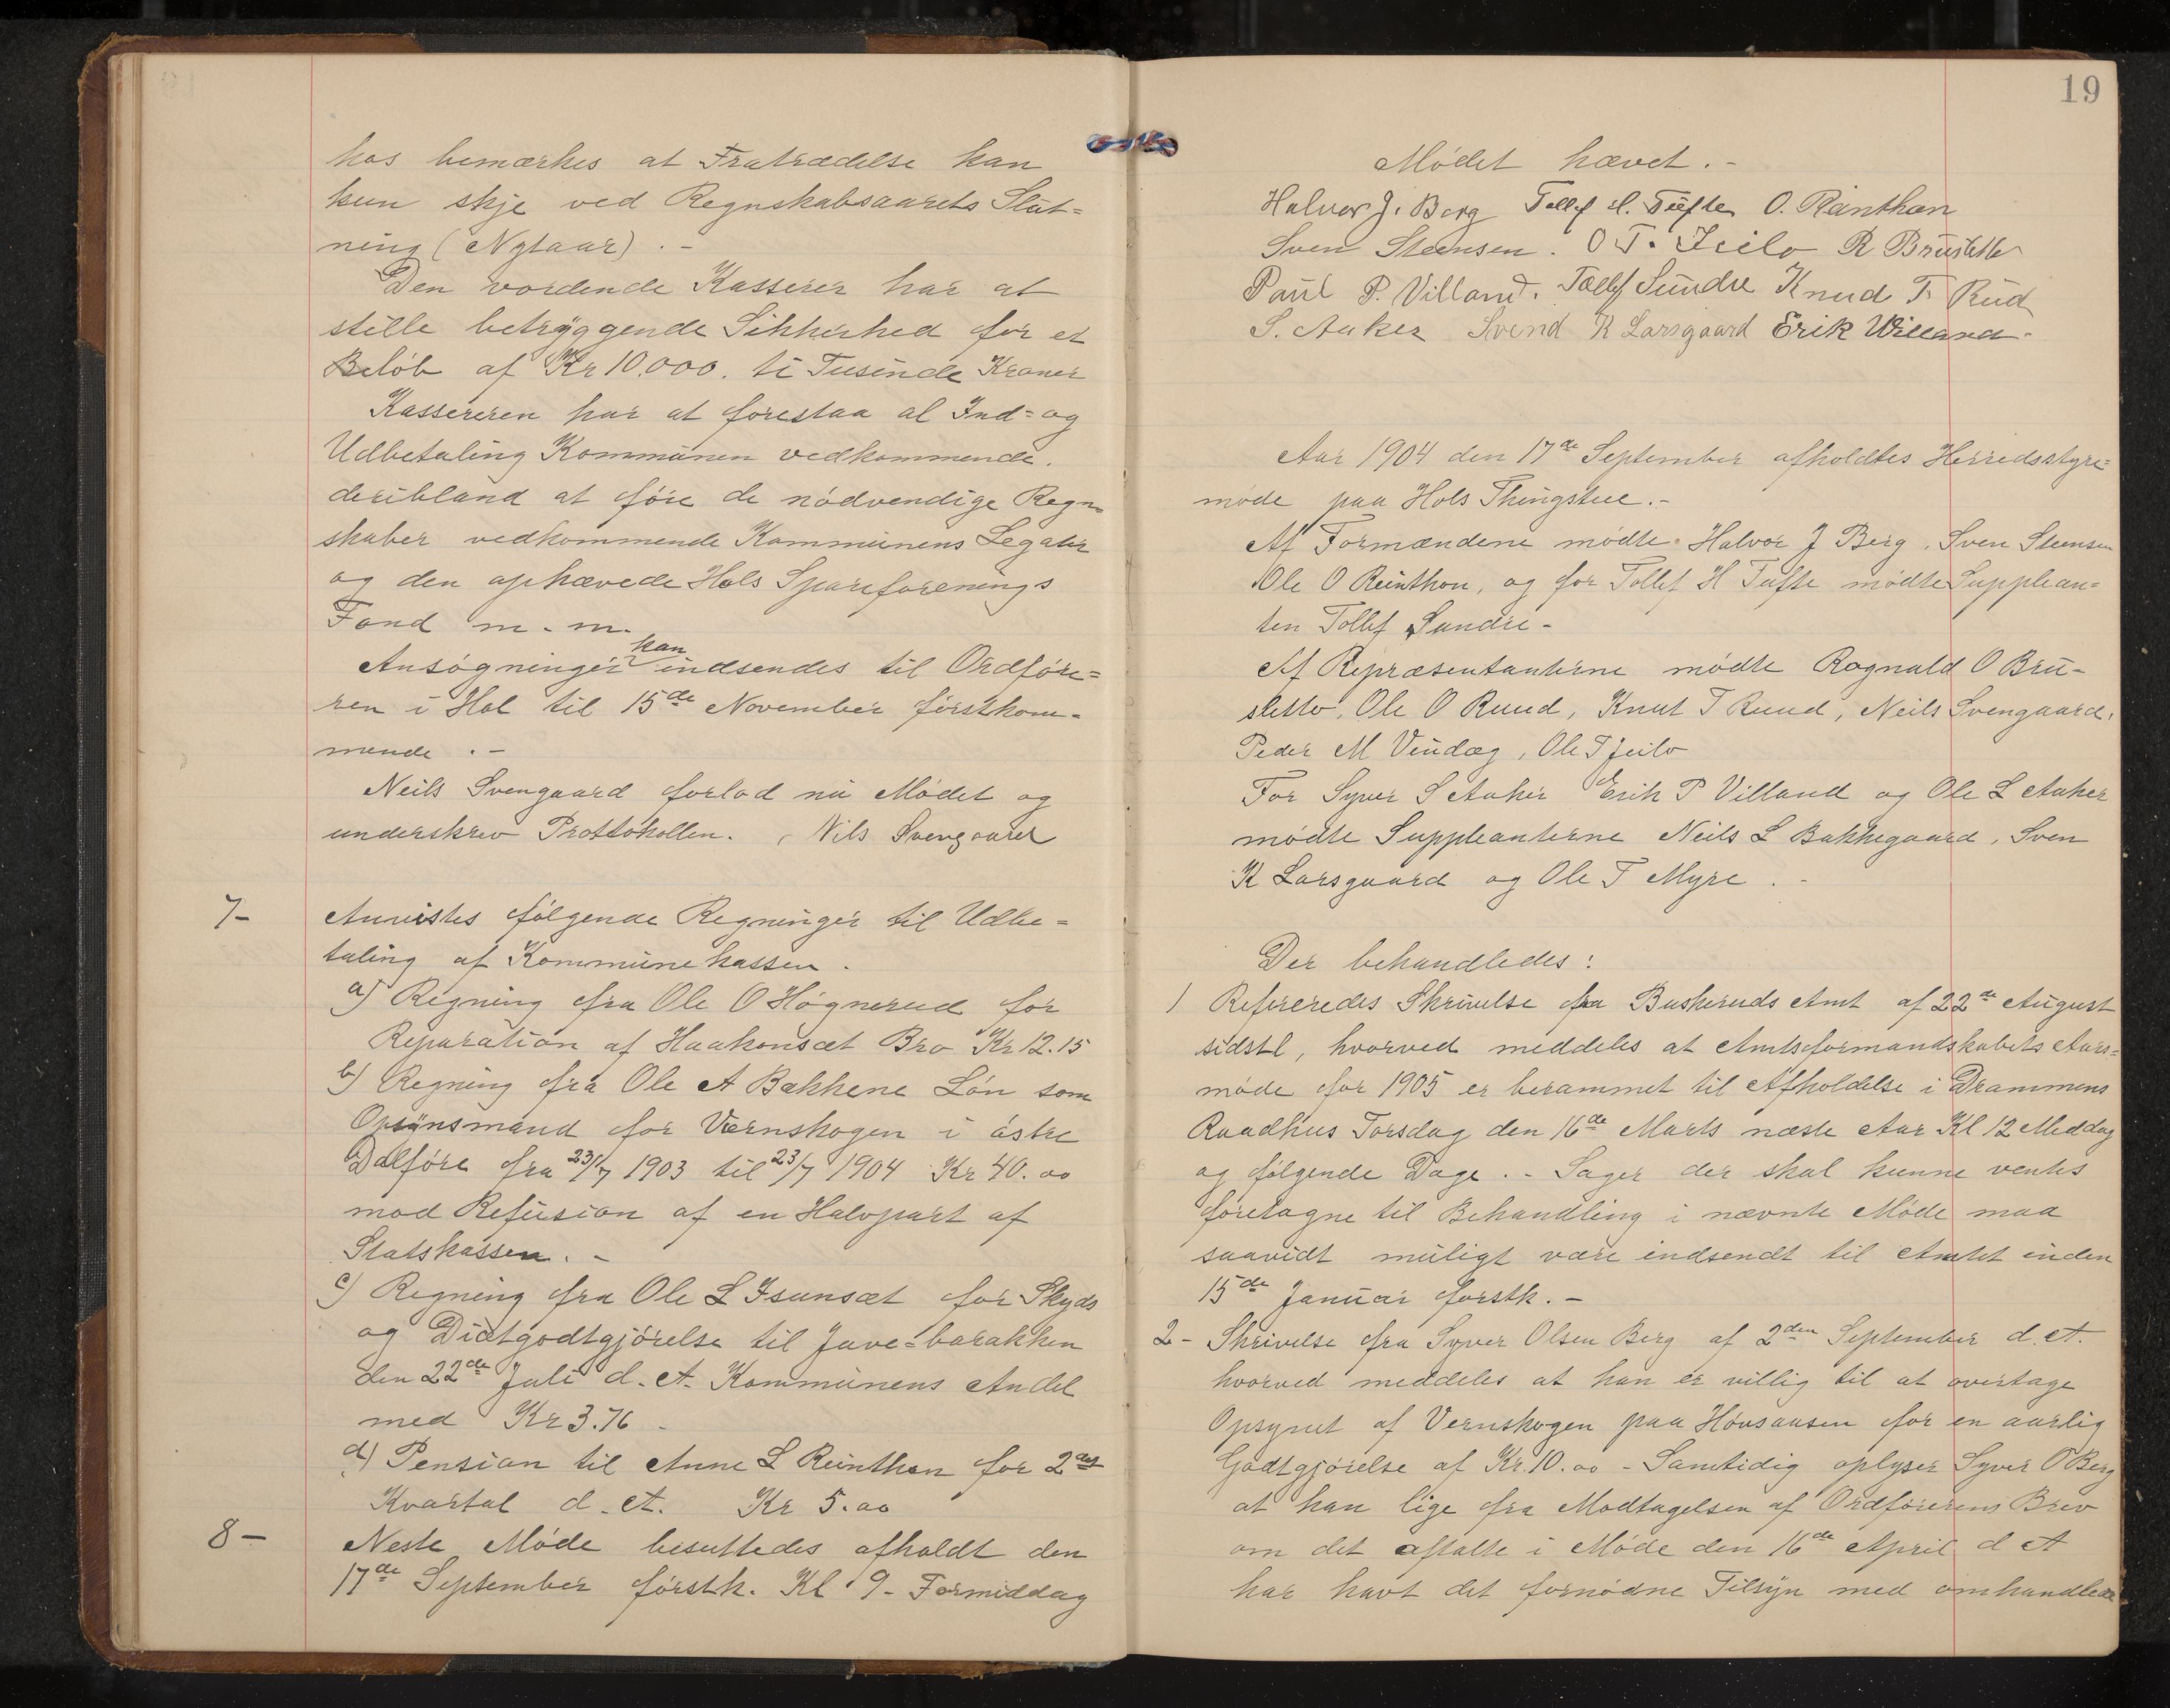 hos bemærkes at Fratrædelse kan
kun skje ved Regnskabsaarets Slut=
ning (Nytaar) . -
Den vordende Kasserer har at
stille betryggende Sikkerhed for et
Beløb af Kr 10.000. ti Tusinde Kroner
Kassereren har at forestaa al Ind= og
Udbetaling Kommunen vedkommende.
deribland at føre de nødvendige Regn=
skaber vedkommende Kommunens Legater
og den ophævede Hols Spareforenings
Fond m. m.
kan
Ansøgninger indsendes til Ordføre=
ren i Hol til 15de November førstkom=
mende . -
Neils Svengaard forlod nu Mødet og
underskrev Prottokollen. Nils Svengaard
7-
Anvistes følgende Regninger til Udbe=
taling af Kommunekassen .
a) Regning fra Ole O Høgnerud for
Reparation af Haakonsæt Bro Kr 12.15
b) Regning fra Ole A Bakkene Løn som
Opsynsmand for Værnskogen i østre
Dalføre fra 23/7 1903 til 23/7 1904 Kr 40.00
mod Refusion af en Halvpart af
Statskassen. -
c) Regning fra Ole L Isunsæt for Skyds
og Diætgodtgjørelse til Juve=barakken
den 22de Juli d. A. Kommunens Andel
med Kr 3.76 -
d) Pension til Anne L Reinthon for 2det
Kvartal d. A. Kr 5.00
8-
Neste Møde besluttedes afholdt den
17de September førstk. Kl 9- Formiddag
19
Mødet hævet . -
Halvor J. Berg Tollef H. Tufte O. Reinthon
Sven Steensen. O T. Jeilo R Bruslette
Paul P. Villand. Tollef Sundre Knud T. Rud
S. Aaker Svend K Larsgaard Erik Willand.
Aar 1904 den 17de September afholdtes Herredsstyre=
møde paa Hols Thingstue.-
Af Formændene mødte Halvor J Berg, Sven Steensen
Ole O Reinthon, og for Tollef H Tufte mødte Supplean=
ten Tollef Sundre -
Af Repræsentanterne mødte Rognald O Bru-
sletto, Ole O Ruud, Knut T Ruud, Neils Svengaard,
Peder M Vindæg, Ole T Jeilo
For Syver S Aaker Erik P Villand og Ole L Aaker
mødte Suppleanterne Neils L Bakkegaard, Sven
K Larsgaard og Ole T Myre . -
Der behandledes :
1 Refereredes Skrivelse fra Buskeruds Amt af 22de August
sidstl, hvorved meddeles at Amtsformandskabets Aars=
møde for 1905 er berammet til Afholdelse i Drammens
Raadhus Torsdag den 16de Marts næste Aar Kl 12 Middag
og følgende Dage . - Sager der skal kunne ventes
foretagne til Behandling i nævnte Møde maa
saavidt muligt være indsendt til Amtet inden
15de Januar forstk. -
2 - Skrivelse fra Syver Olsen Berg af 2den September d. A.
hvorved meddeles at han er villig til at overtage
Opsynet af Vernskogen paa Hovsaasen for en aarlig
Godtgjørelse af Kr. 10.00 - Samtidig oplyser Syver O Berg
at han lige fra Modtagelsen af Ordførerens Brev
om det aftalte i Møde den 16de April d A
har havt det fornødne Tilsyn med omhandlede